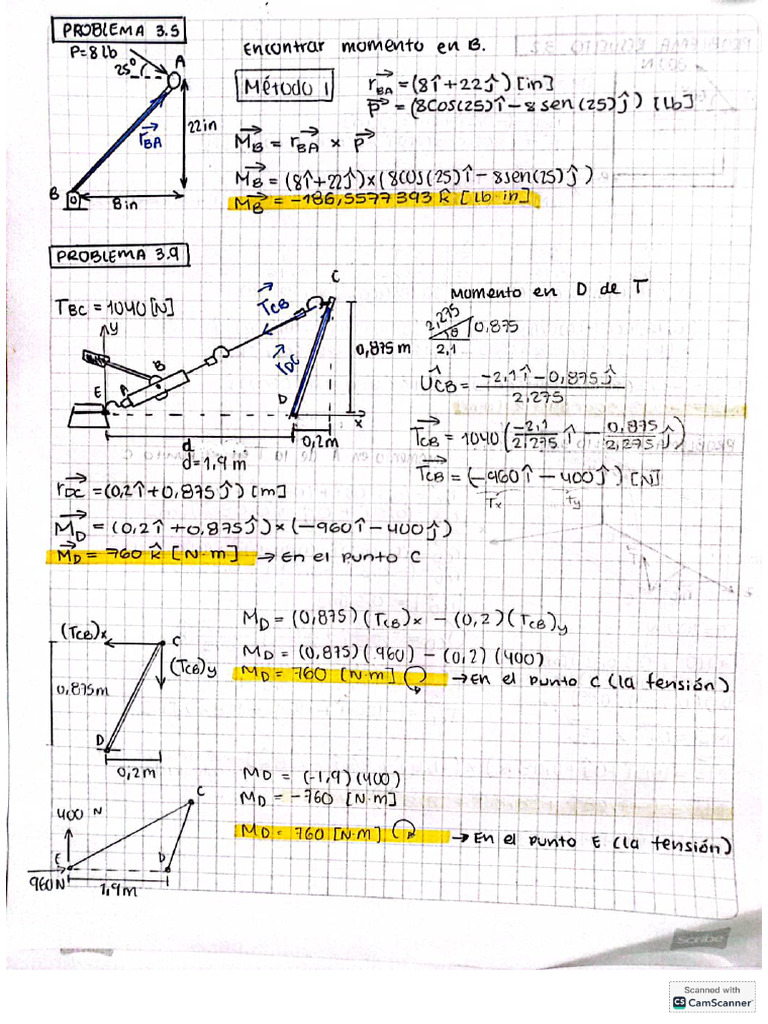 PROBLEMA 3.5
P=8 lb
A
25°
22in
r⃗BA
B
8in
Encontrar momento en B.
Método 1
r⃗BA = (8î+22ĵ) [in]
P⃗ = (8cos(25)î - 8 sen(25)ĵ) [lb]
M⃗B = r⃗BA × P⃗
M⃗B = (8î+22ĵ)×(8cos(25)î - 8sen(25)ĵ)
M⃗B = -186,5577393 k̂ [lb·in]
PROBLEMA 3.9
TBC = 1040 [N]
y
C
T⃗CB
r⃗DC
0,875 m
B
A
E
D
x
0,2m
d
d=1,9 m
Momento en D de T
2,275
θ
0,875
2,1
ÛCB = -2,1î - 0,875ĵ
2,275
T⃗CB = 1040 (-2,1/2,275 î - 0,875/2,275 ĵ)
T⃗CB = (-960î - 400ĵ) [N]
Tx Ty
r⃗DC = (0,2î+0,875ĵ) [m]
M⃗D = (0,2î+0,875ĵ)×(-960î-400ĵ)
M⃗D = 760 k̂ [N·m] → En el punto C
(TCB)x
C
(TCB)y
0,875m
D
0,2m
MD = (0,875)(TCB)x - (0,2)(TCB)y
MD = (0,875)(960) - (0,2)(400)
MD = 760 [N·m] → En el punto C (la tensión)
C
400 N
E
D
960N
1,9m
MD = (-1,9)(400)
MD = -760 [N·m]
MD = 760 [N·m] → En el punto E (la tensión)
Scribe
Scanned with
CS CamScanner